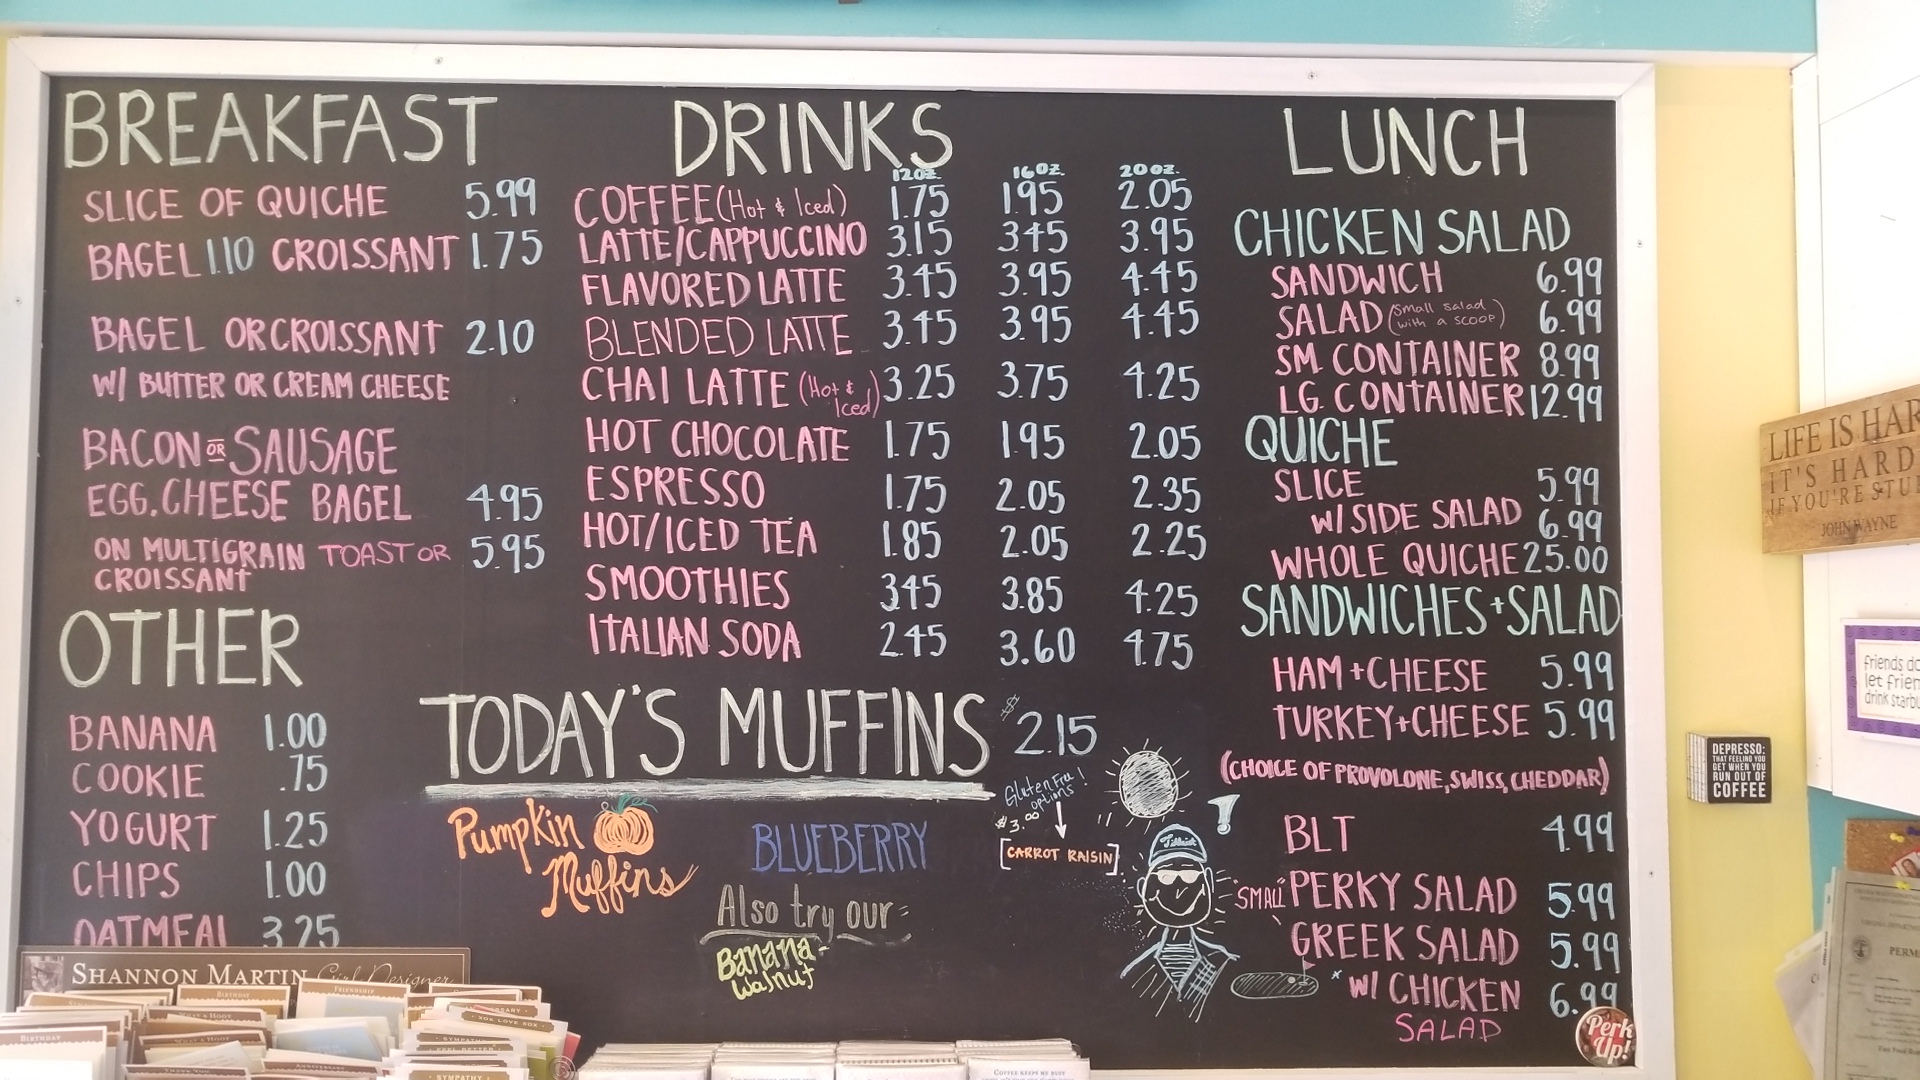 BREAKFAST
SLICE OF QUICHE 5.99
BAGEL 1.10 CROISSANT 1.75
BAGEL OR CROISSANT 2.10
W/ BUTTER OR CREAM CHEESE
BACON OR SAUSAGE
EGG, CHEESE BAGEL 4.95
ON MULTIGRAIN TOAST OR 5.95
CROISSANT
OTHER
BANANA 1.00
COOKIE .75
YOGURT 1.25
CHIPS 1.00
OATMEAL 3.25
DRINKS
12oz. 16oz. 20oz.
COFFEE (Hot & Iced) 1.75 1.95 2.05
LATTE/CAPPUCCINO 3.15 3.45 3.95
FLAVORED LATTE 3.45 3.95 4.45
BLENDED LATTE 3.45 3.95 4.45
CHAI LATTE (Hot & Iced) 3.25 3.75 4.25
HOT CHOCOLATE 1.75 1.95 2.05
ESPRESSO 1.75 2.05 2.35
HOT/ICED TEA 1.85 2.05 2.25
SMOOTHIES 3.45 3.85 4.25
ITALIAN SODA 2.45 3.60 4.75
TODAY'S MUFFINS $2.15
Pumpkin
Muffins
BLUEBERRY
Also try our
Banana
Walnut
Gluten Free
options!
$3.00
CARROT RAISIN
LUNCH
CHICKEN SALAD
SANDWICH 6.99
SALAD (small salad with a scoop) 6.99
SM. CONTAINER 8.99
LG. CONTAINER 12.99
QUICHE
SLICE 5.99
W/ SIDE SALAD 6.99
WHOLE QUICHE 25.00
SANDWICHES + SALAD
HAM + CHEESE 5.99
TURKEY + CHEESE 5.99
(CHOICE OF PROVOLONE, SWISS, CHEDDAR)
BLT 4.99
"SMALL" PERKY SALAD 5.99
GREEK SALAD 5.99
* W/ CHICKEN 6.99
SALAD
Perk
Up!
LIFE IS HAR
IT'S HARD
IF YOU'RE STU
JOHN WAYNE
friends do
let frien
drink starbu
DEPRESSO:
THAT FEELING YOU
GET WHEN YOU
RUN OUT OF
COFFEE
PERM
SHANNON MARTIN Girl Designer
BIRTHDAY
FRIENDSHIP
BIRTHDAY
SYMPATHY
SYMPATHY
COFFEE KEEPS ME BUSY